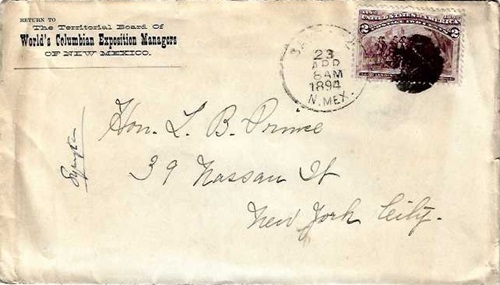 RETURN TO
The Territorial Board Of
World's Columbian Exposition Managers
OF NEW MEXICO.
23
APR
8AM
1894
N. MEX.
UNITED STATES OF AMERICA
2 2
Hon. L. B. Prince
39 Nassau St
New York City.